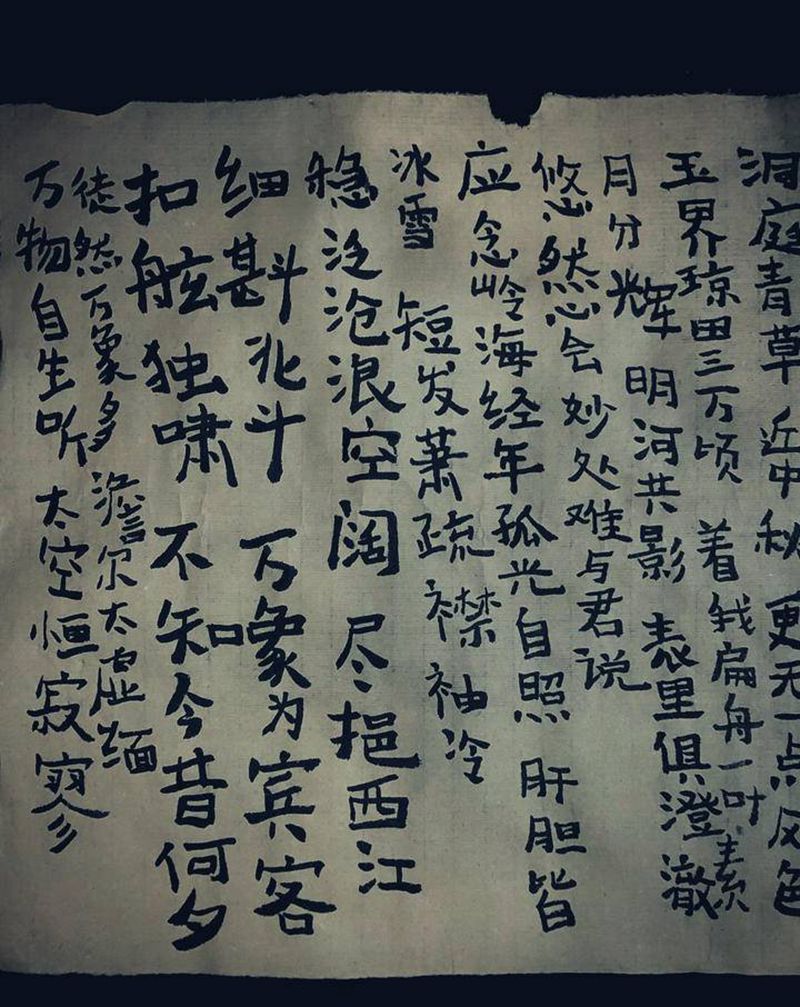 洞庭青草 近中秋 更无一点风色
玉界琼田三万顷 着我扁舟一叶 素
月分辉 明河共影 表里俱澄澈
悠然心会 妙处难与君说
应念岭海经年 孤光自照 肝胆皆
冰雪 短发萧疏襟袖冷
稳泛沧浪空阔 尽挹西江
细斟北斗 万象为宾客
扣舷独啸 不知今昔何夕
徒然万象多 澹尔太虚缅
万物自生听 太空恒寂寥